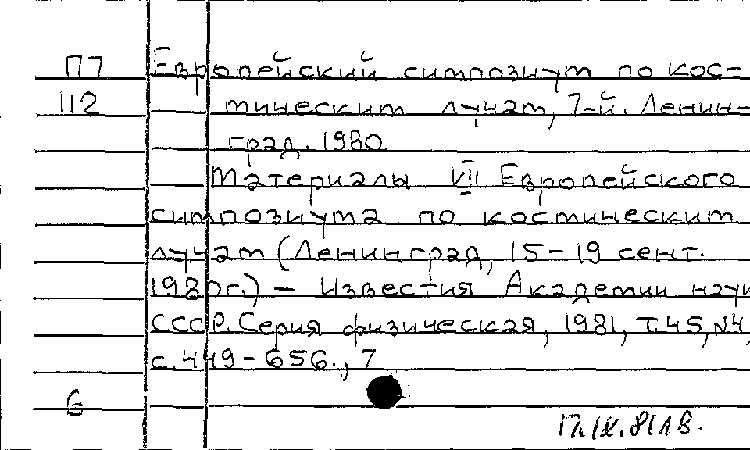 П7 Европейский симпозиум по кос-
112 мическим лучам, 7-й. Ленин-
град. 1980
Материалы VII Европейского
симпозиума по космическим
лучам (Ленинград, 15-19 сент.
1980г.) - Известия Академии наук
СССР. Серия физическая, 1981, т.45, №4,
с. 449-656., 7
6
17.IX.81